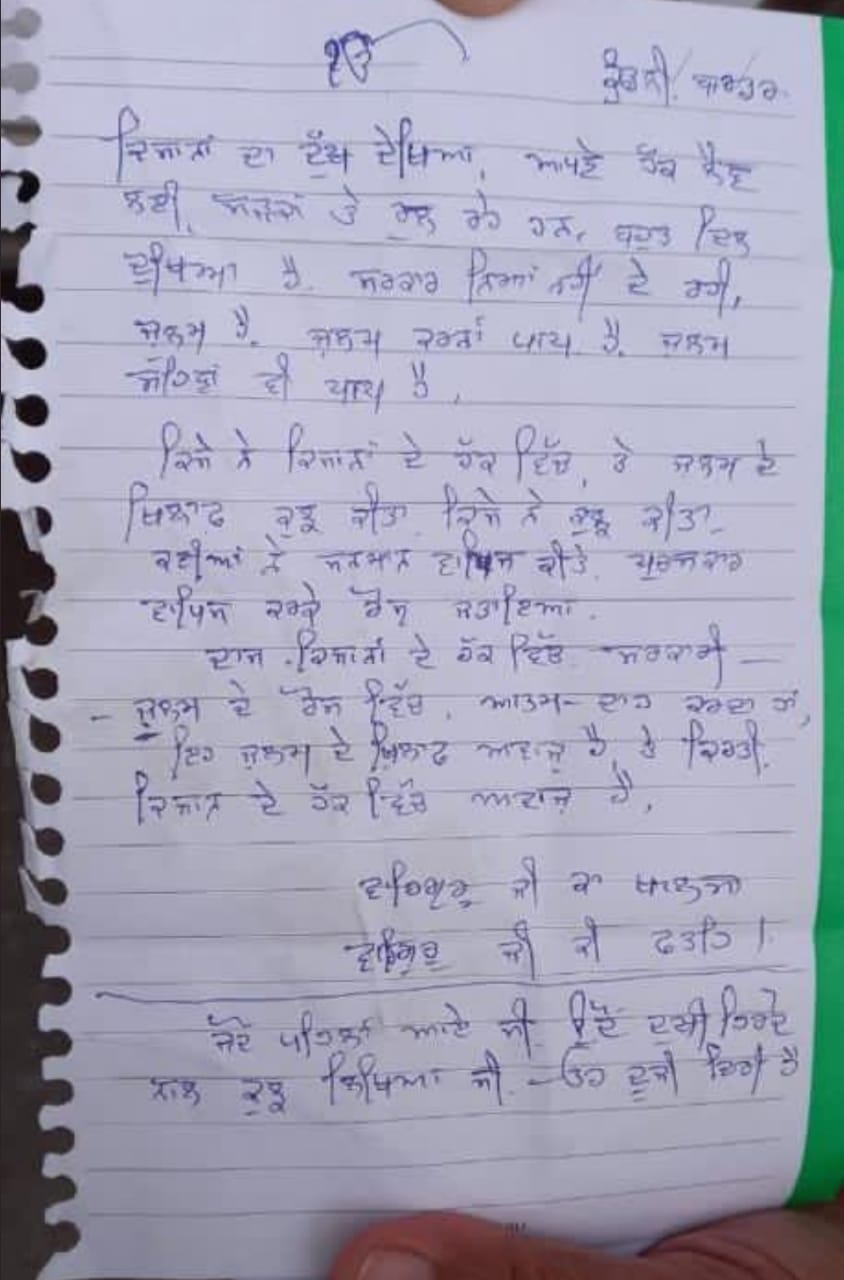 ੴ
ਕੁੰਡਲੀ ਬਾਰਡਰ
ਕਿਸਾਨਾਂ ਦਾ ਦੁੱਖ ਦੇਖਿਆ, ਆਪਣੇ ਹੱਕ ਲੈਣ
ਲਈ, ਸੜਕਾਂ ਤੇ ਰੁਲ ਰਹੇ ਹਨ, ਬਹੁਤ ਦਿਲ
ਦੁਖਿਆ ਹੈ. ਸਰਕਾਰ ਨਿਆਂ ਨਹੀਂ ਦੇ ਰਹੀ,
ਜ਼ੁਲਮ ਹੈ. ਜ਼ੁਲਮ ਕਰਨਾਂ ਪਾਪ ਹੈ. ਜ਼ੁਲਮ
ਸਹਿਣਾਂ ਵੀ ਪਾਪ ਹੈ,
ਕਿਸੇ ਨੇ ਕਿਸਾਨਾਂ ਦੇ ਹੱਕ ਵਿੱਚ, ਤੇ ਜ਼ੁਲਮ ਦੇ
ਖਿਲਾਫ ਕੁਝ ਕੀਤਾ ਕਿਸੇ ਨੇ ਕੁਝ ਕੀਤਾ
ਕਈਆਂ ਨੇ ਸਨਮਾਨ ਵਾਪਿਸ ਕੀਤੇ, ਪੁਰਸਕਾਰ
ਵਾਪਿਸ ਕਰਕੇ ਰੋਸ ਜਤਾਇਆ.
ਦਾਸ ਕਿਸਾਨਾਂ ਦੇ ਹੱਕ ਵਿੱਚ ਸਰਕਾਰੀ —
– ਜ਼ੁਲਮ ਦੇ ਰੋਸ ਵਿੱਚ, ਆਤਮ-ਦਾਹ ਕਰਦਾ ਹਾਂ,
ਇਹ ਜ਼ੁਲਮ ਦੇ ਖ਼ਿਲਾਫ ਅਵਾਜ਼ ਹੈ, ਤੇ ਕਿਰਤੀ
ਕਿਸਾਨ ਦੇ ਹੱਕ ਵਿੱਚ ਆਵਾਜ਼ ਹੈ,
ਵਾਹਿਗੁਰੂ ਜੀ ਕਾ ਖਾਲਸਾ
ਵਾਹਿਗੁਰੂ ਜੀ ਕੀ ਫਤਹਿ।
ਪਹਿਲਾਂ ਆਏ ਸੀ ਦੁਖੀ ਹਿਰਦੇ
ਨਾਲ ਕੁਝ ਲਿਖਿਆ ਸੀ - ਉਹ ਦੂਜੀ ਹੈ